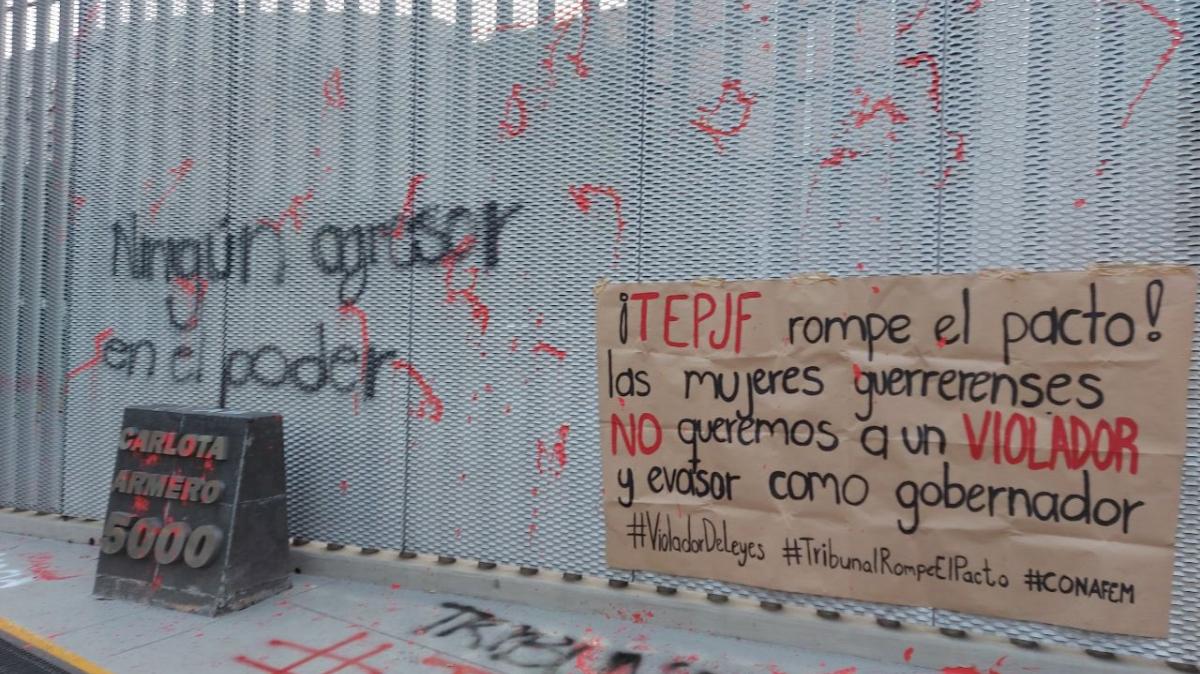 Ningún agresor
en el poder
CARLOTA
ARMERO
5000
¡TEPJF rompe el pacto!
las mujeres guerrerenses
NO queremos a un VIOLADOR
y evasor como gobernador
#VioladorDeLeyes #TribunalRompeElPacto #CONAFEM
#